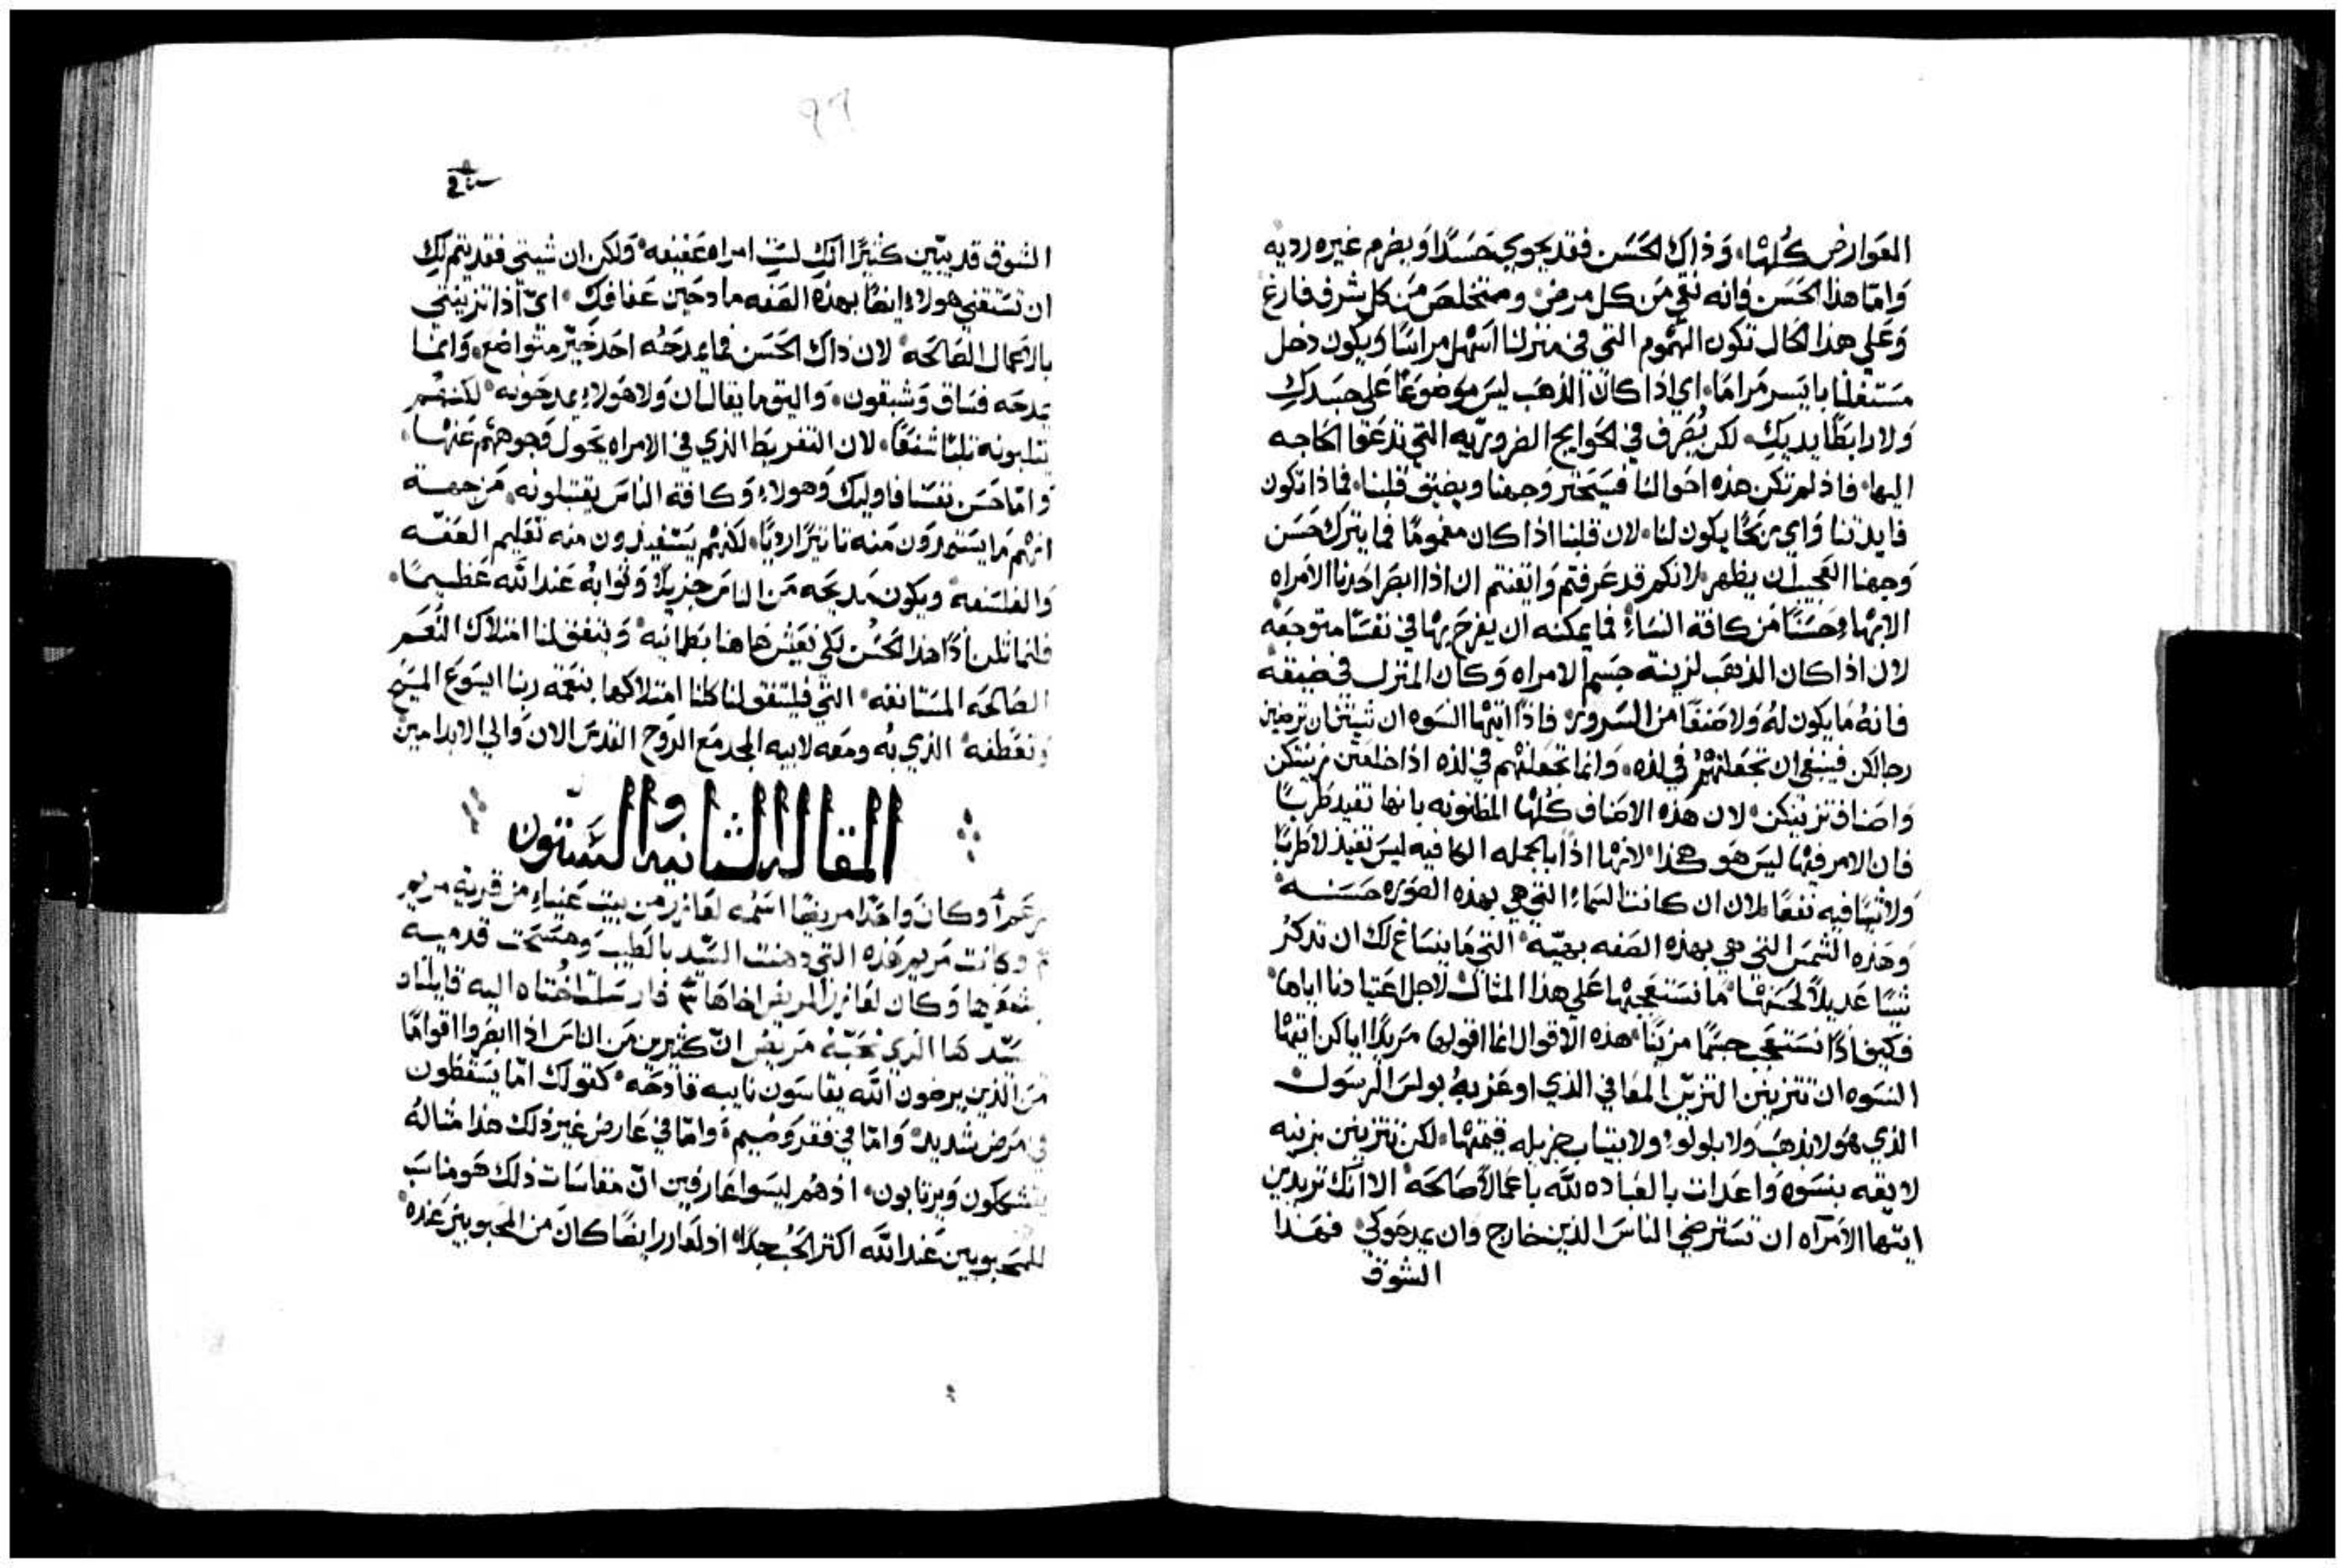 العوارض كلها، وذاك الحسن فقد يحوي حسدًا ويضرم غيره رديه
وامّا هذا الحسن فانه نقي من كل مرض ومتخلص من كل شرف فارغ
وعلي هذا الحال تكون الهموم التي في منزلنا اسهل مراسًا ويكون دخل
مستغلنا بايسر مرامًا، اي اذا كان الذهب ليس موضوعًا علي جسدكِ
ولا رابطًا يديكِ، لكن يُصرف في الحوايج الضروريّه التي تدعوا الحاجه
اليها، فاذ لم تكن هذه احوالنا فسيختر وجهنا ويضيق قلبنا، فماذا تكون
فايدتنا واي ربحًا يكون لنا، لان قلبنا اذا كان مغمومًا فما يترك حسن
وجهنا العجيب ان يظهر، لانكم قد عرفتم وايقنتم ان اذا ابصر احدنا الامراه
الابهاء حسنًا من كافة النساء فما يمكنه ان يفرح بها في نفسًا متوجعه
لان اذا كان الذهب لزينة جسم الامراه وكان المنزل في ضيقه
فانهُ ما يكون لهُ ولا صنفًا من السرور، فاذًا ايتها النسوه ان شيتن ان ترضين
رجالكن فينبغي ان تجعلنهم في لذه، وانما تجعلنهم في لذه اذا خلعتن زينتكن
واصناف تزينكن، لان هذه الاصناف كلها المظنونه بانها تفيد طربًا
فان الامر فيها ليس هو هكذا، لانها اذًا بالجمله الكافيه ليس تفيد لا طربًا
ولا شيا فيه نفعًا، لان ان كانت السماء التي هي بهذه الصوره حسنه
وهذه الشمس التي هي بهذه الصفه بهيّه، التي ما ينساغ لك ان تذكر
شيًا عديلاً لحسنها، ما نستعجبها علي هذا المثال لاجل اعتيادنا اياها
فكيف اذًا نستعجب جسمًا مزينًا، هذه الاقوال انما اقولها مريدًا اياكن ايتها
النسوه ان تتزينن التزيّن المعافي الذي اوعز بهُ بولس الرسول
الذي هو لا بذهب ولا بلولو، ولا بثياب جزيله قيمتها، لكن تتزينن بزينه
لايقه بنسوه واعدات بالعباده لله باعمالاً صالحه، الا انّك تريدين
ايتها الامراه ان تسترضي الناس الذين خارج وان يمدحوكي فهذا
الشوق
الشوق قد يبّين كثيرًا انّكِ لستِ امراه عفيفه، ولكن ان شيتي فقد يتم لكِ
ان تستقني هولاء ايضًا بهذه الصفه مادحين عفافكِ، ايّ اذا تزينتي
بالاعمال الصالحه، لان ذاك الحسن فما يمدحُه احد خيّر متواضع، وانما
يمدحه فساق وشبقون، واليق ما يقال ان ولا هولاء يمدحونه، لكنهم
يثلبونه ثلبًا شنعًا، لان التفريط الذي في الامراه يحول وجوههم عنها،
وامّا حسن نفسًا فاوليك وهولاء وكافة الناس يقتبلونه، من جهة
انهم ما يستمدون منه تاثيرًا رديًا، لكنهم يستفيدون منه تعليم العفّه
والفلسفه، ويكون مديحه من الناس جزيلاً وثوابهُ عند الله عظيمًا،
فلنماثلن اذًا هذا الحسن لكي نعيش هاهنا بطمانيه، ويتفق لنا امتلاك النعم
الصالحه المستانفه، التي فليتفق لنا كلنا امتلاكها بنعمة ربنا ايسوع المسيح
وتعطفه، الذي بهُ ومعه لابيه المجد مع الروح القدس الان والي الابد امين
المقاله الثانيه والستون
وكان واحدًا مريضًا اسمه لعازر من بيت عنياء من قرية مريم
وكانت مريم هذه التي دهنت السّيد بالطيب ومسحت قدميه
بشعرها وكان لعازر المريض اخاها، فارسلت اختاه اليه قايلتاه
سيّد ها الذي تحبّهُ مريض انّ كثيرين من الناس اذا ابصروا اقوامًا
من الذين يرضون الله يقاسون نايبه فادحه، كقولك امّا يسقطون
في مرض شديد، وامّا في فقر وضيم، وامّا في عارض غير ذلك هذا مثالهُ
يتشككون ويرتابون، اذ هُم ليسوا عارفين انّ مقاسات ذلك هو مناسب
للمحبوبين عند الله اكثر الحُب جدًا، اذ لعازر ايضًا كان من المحبوبين عنده